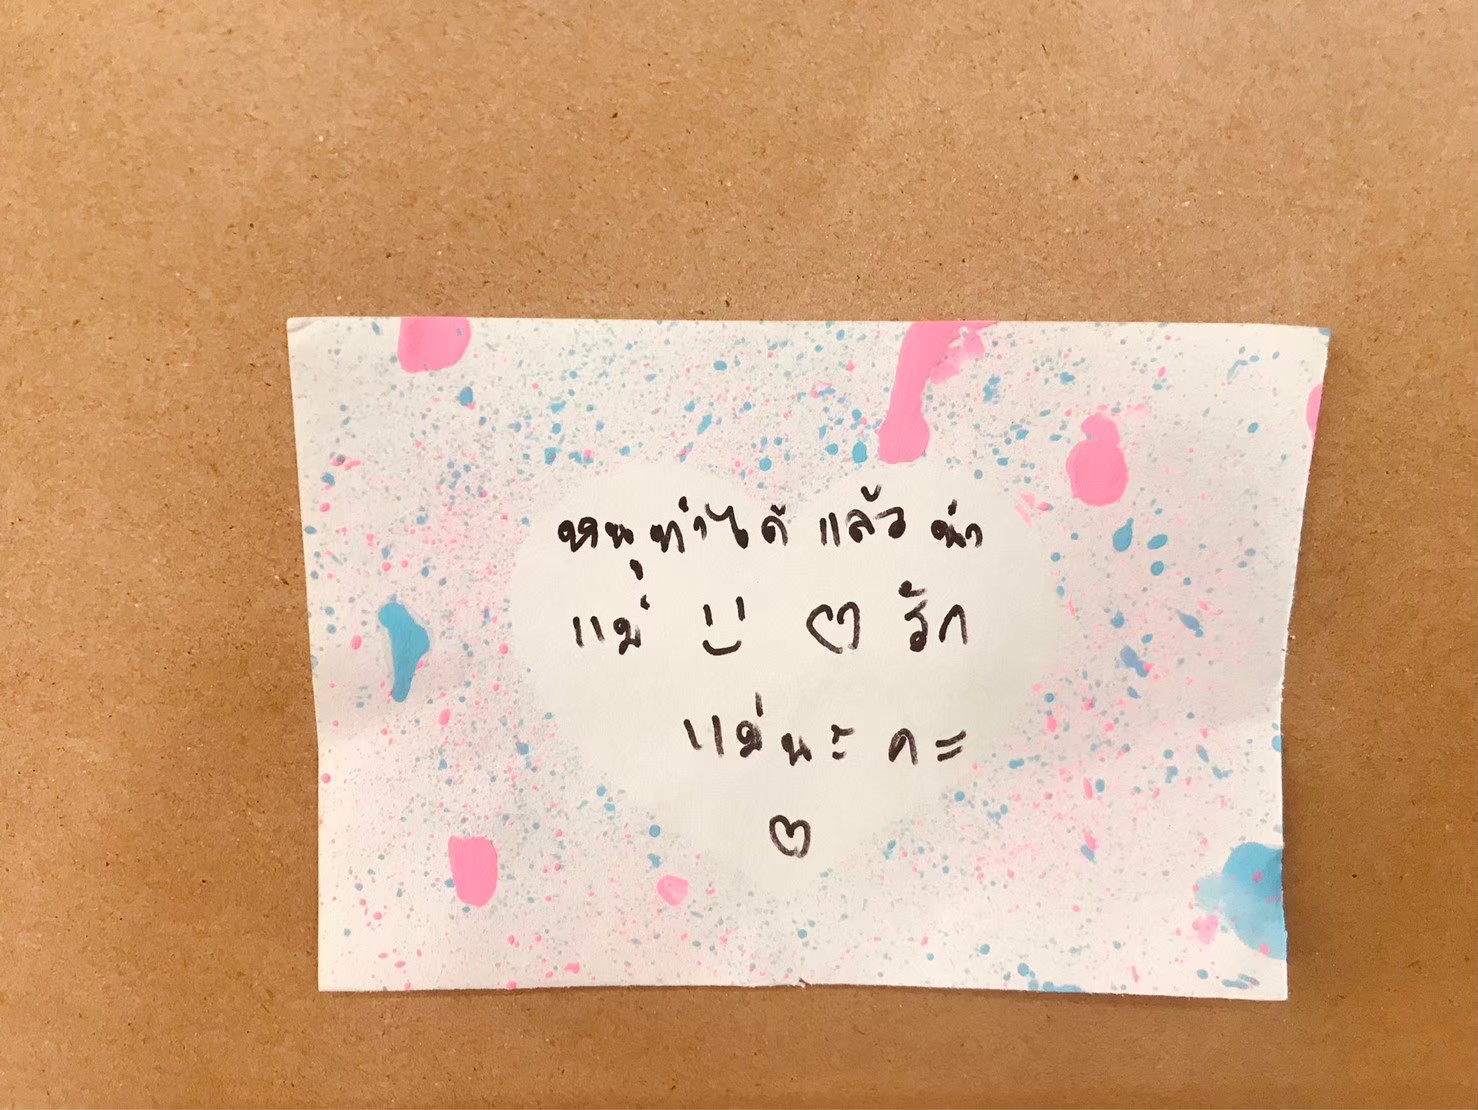 หนูทำได้แล้วน่า
แม่ รัก
แม่นะคะ